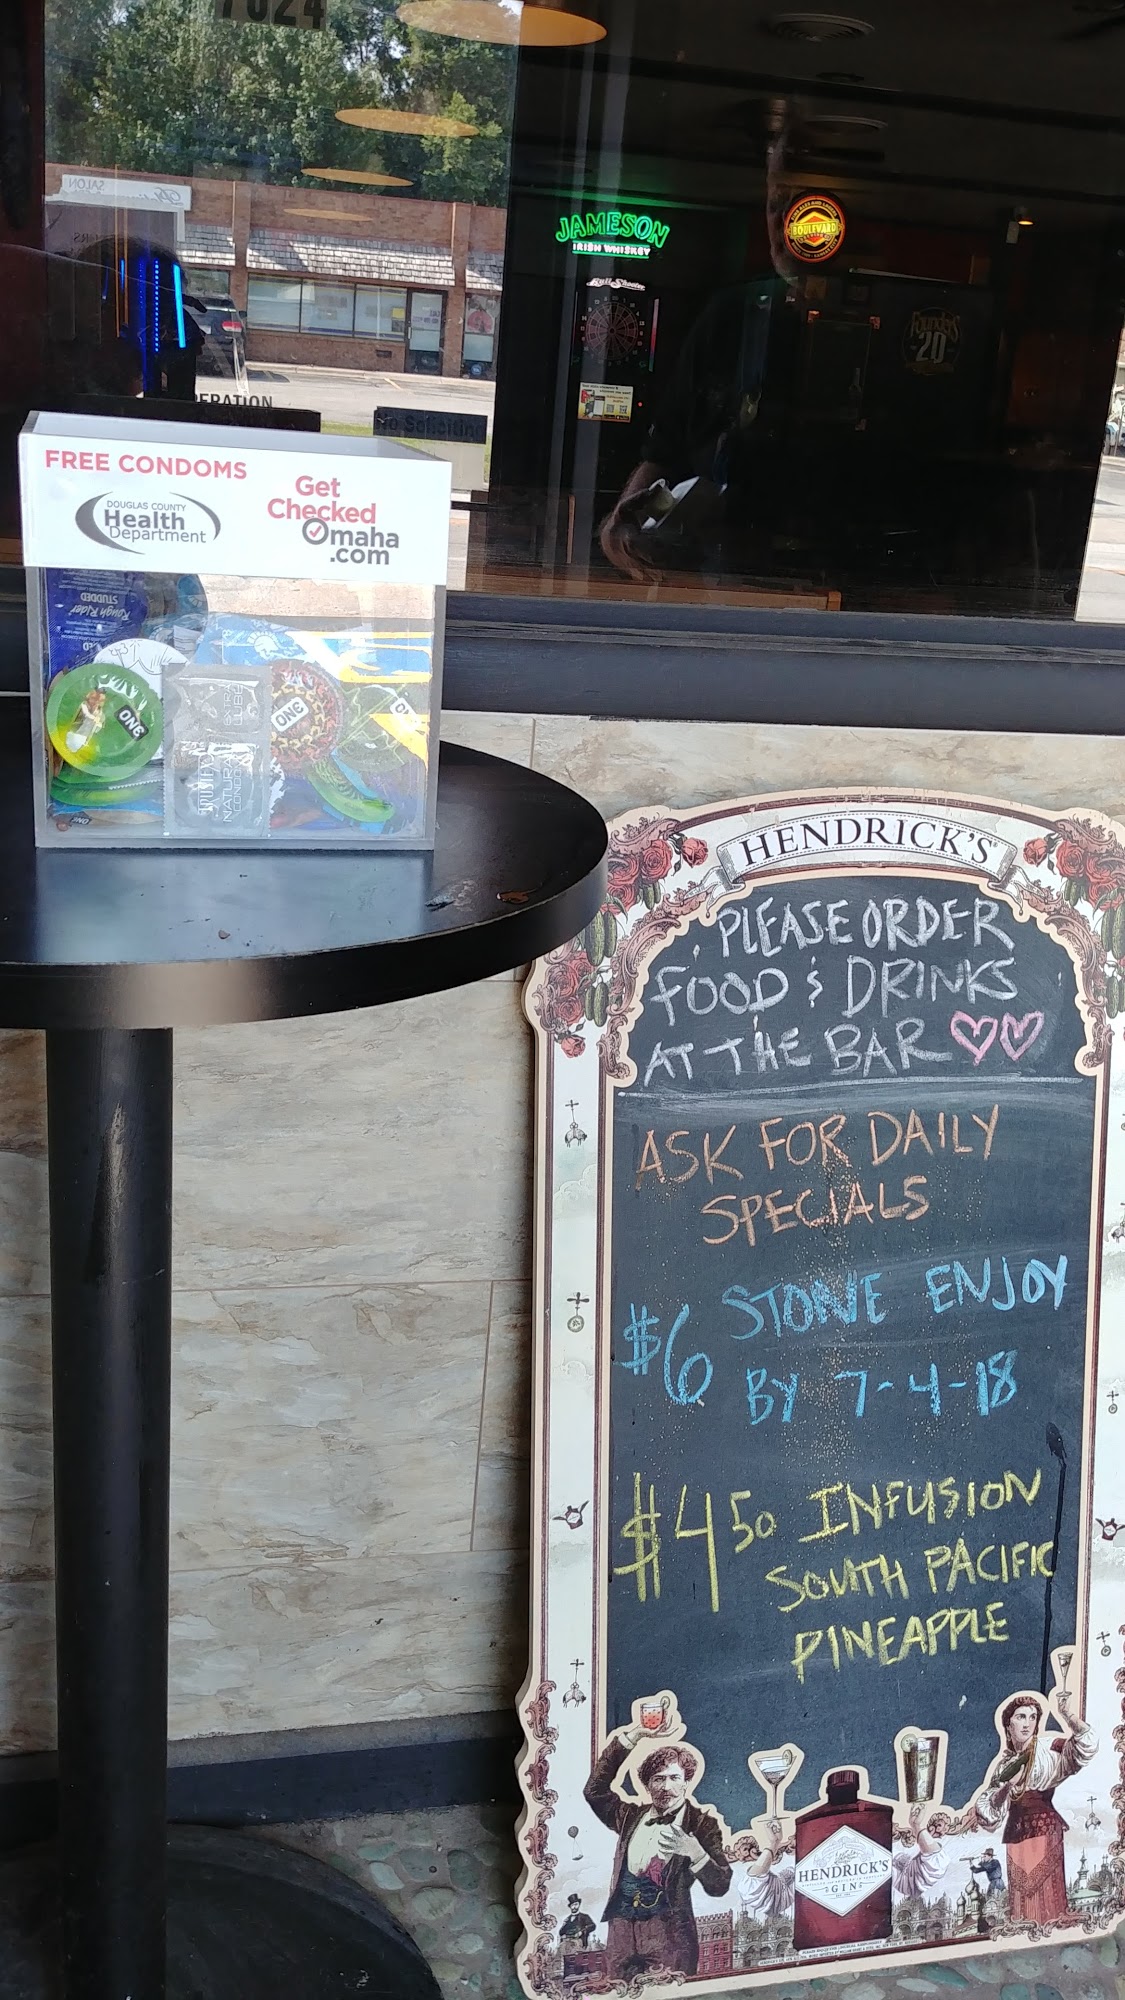 7024
SALON
JAMESON
IRISH WHISKEY
BOULEVARD
Bull Shooter
Founders
20
OPERATION
No Soliciting
FREE CONDOMS
DOUGLAS COUNTY
Health
Department
Get
Checked
Omaha
.com
Rough Rider
STUDDED
ONE
ONE
EXTRA
LUBE
HENDRICK'S
PLEASE ORDER
FOOD & DRINKS
AT THE BAR
ASK FOR DAILY
SPECIALS
$6 STONE ENJOY
BY 7-4-18
$4 50 INFUSION
SOUTH PACIFIC
PINEAPPLE
HENDRICK'S
GIN